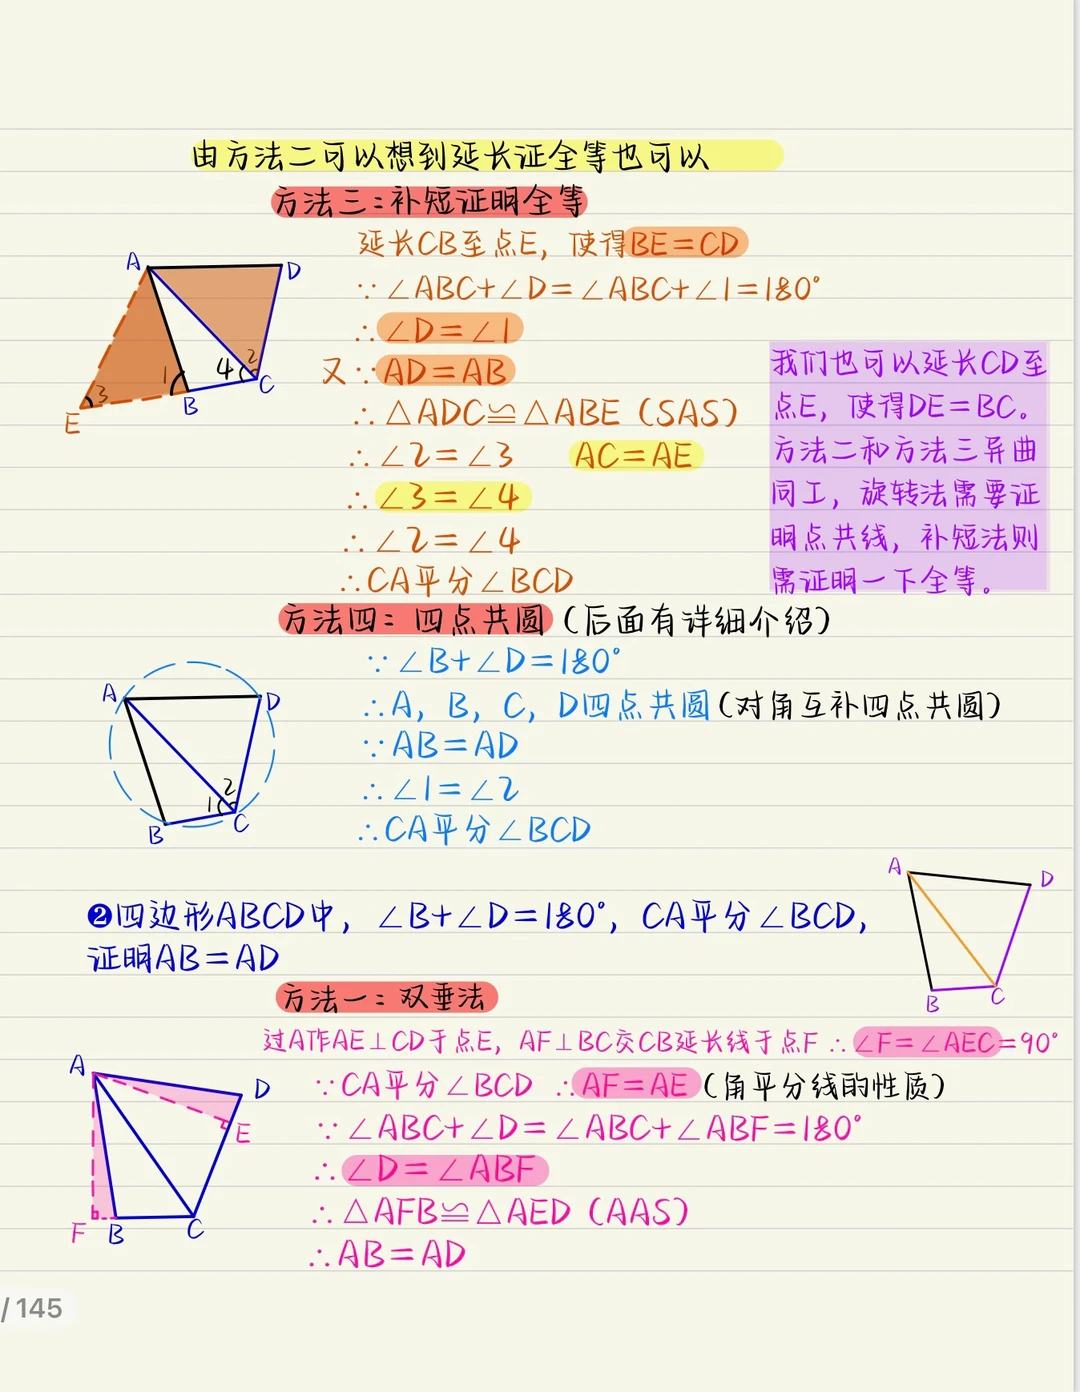 由方法二可以想到延长证全等也可以
方法三：补短证明全等
延长CB至点E，使得BE=CD
∵∠ABC+∠D=∠ABC+∠1=180°
∴∠D=∠1
又∵AD=AB
∴△ADC≌△ABE（SAS）
∴∠2=∠3 AC=AE
∴∠3=∠4
∴∠2=∠4
∴CA平分∠BCD
A
D
1
4
2
3
C
B
E
我们也可以延长CD至
点E，使得DE=BC。
方法二和方法三异曲
同工，旋转法需要证
明点共线，补短法则
需证明一下全等。
方法四：四点共圆（后面有详细介绍）
∵∠B+∠D=180°
∴A，B，C，D四点共圆（对角互补四点共圆）
∵AB=AD
∴∠1=∠2
∴CA平分∠BCD
A
D
2
1
B
C
❷四边形ABCD中，∠B+∠D=180°，CA平分∠BCD，
证明AB=AD
A
D
B
C
方法一：双垂法
过A作AE⊥CD于点E，AF⊥BC交CB延长线于点F ∴∠F=∠AEC=90°
∵CA平分∠BCD ∴AF=AE（角平分线的性质）
∵∠ABC+∠D=∠ABC+∠ABF=180°
∴∠D=∠ABF
∴△AFB≌△AED（AAS）
∴AB=AD
A
D
E
F
B
C
/ 145